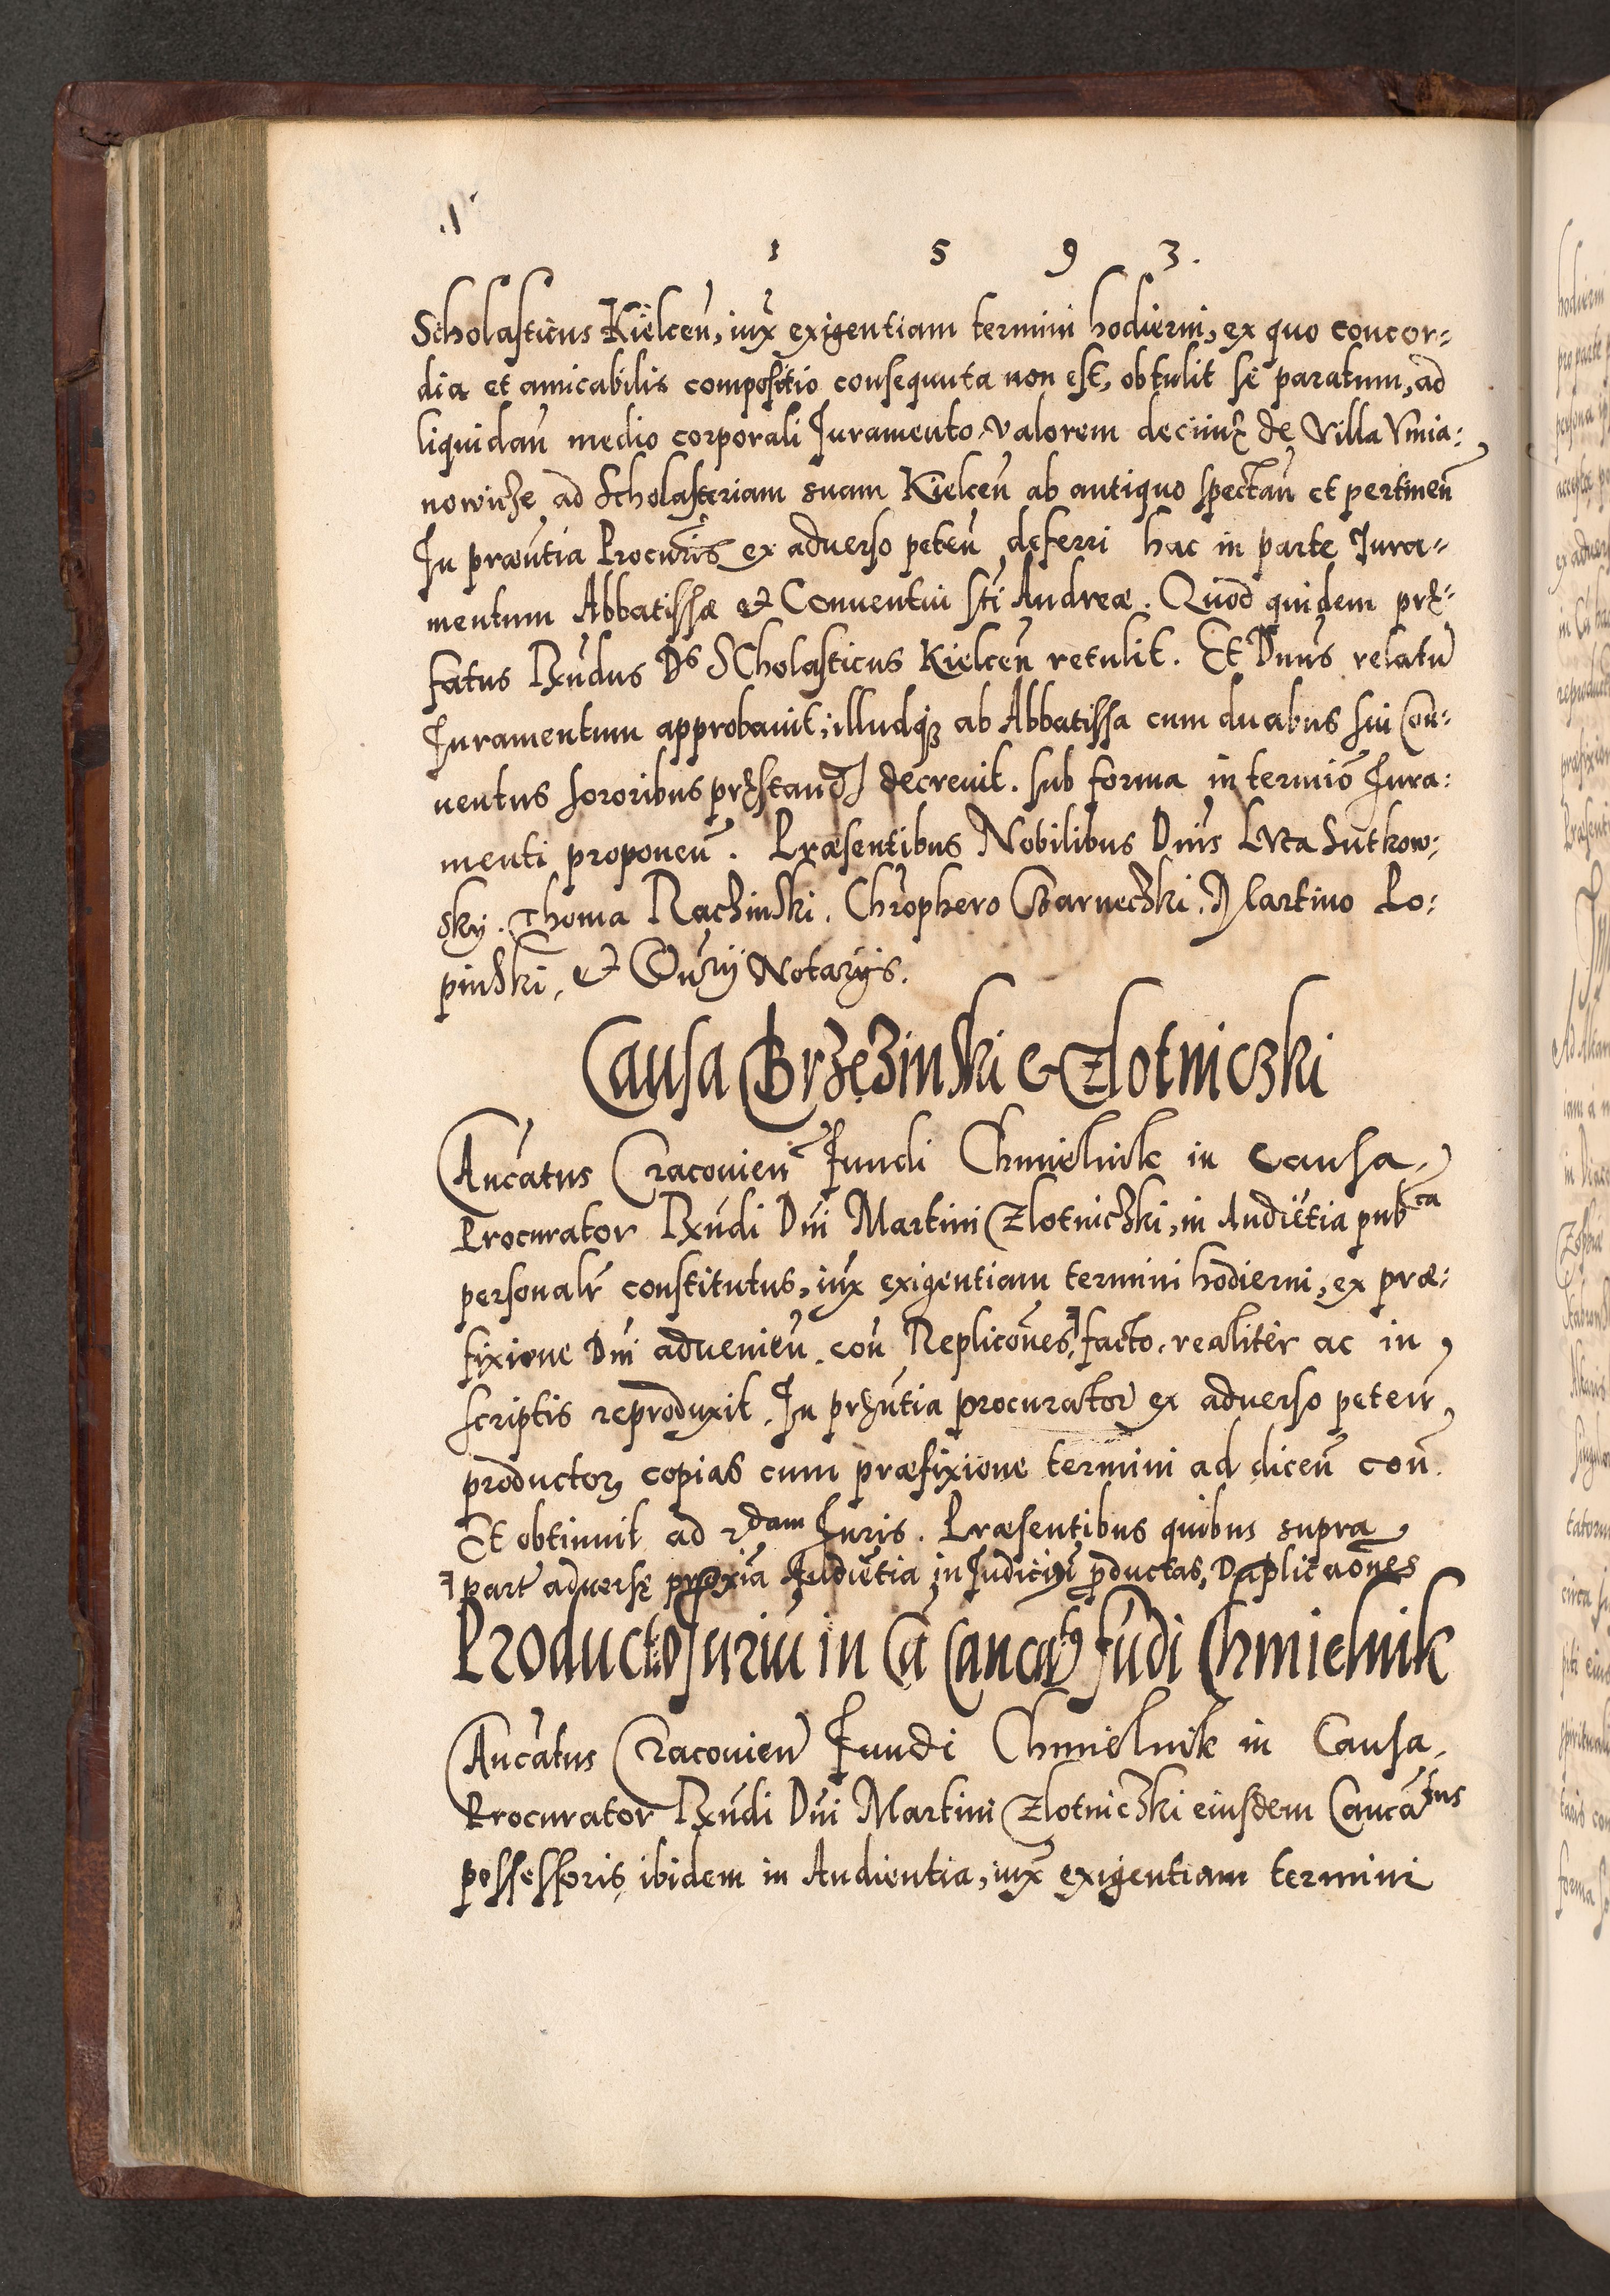 1 5 9 3.
Scholasticus Kielceñ, iux̃ exigentiam termini hodierni, ex quo concor=
dia et amicabilis compositio consequuta non est, obtulit se paratum, ad
liquidañ medio corporali Iuramento valorem decimę de Villa Vmia:
nowicze ad Scholasteriam suam Kielceñ ab antiquo spectañ et pertineñ
In præñtia Procuris ex aduerso peteñ deferri hac in parte Iura=
mentum Abbatissæ et Conuentui Sti Andreæ. Quod quidem prę=
fatus Rx̃ndus Ds Scholasticus Kielceñ retulit. Et Dnus relatũ
Iuramentum approbauit, illudq3 ab Abbatissa cum duabus sui Con=
uentus sororibus pręstand decreuit. sub forma in termio Iura:
menti proponeñ. Præsentibus Nobilibus Dnis Luca Sutkow:
sky. Thoma Raczinski. Chrophero Czarneczki. Martino Lo:
pinski, et Curij Notarijs.
Causa Brzęzinski & Zlotniczki
Cancatus Cracouieñ Fundi Chmielnik in causa
Procurator Rx̃ndi Dni Martini Zlotniczki, in Audiẽtia pubca
personalr constitutus, iux̃ exigentiam termini hodierni, ex præ:
fixione Dni aduenieñ. coñ Replicões, facto realiter ac in
scriptis reproduxit. In pręñtia procurator ex aduerso peteñ
productor copias cum præfixione termini ad diceñ coñ.
Et obtinuit ad 2dam Iuris. Præsentibus quibus supra
part aduersę proxia Audiẽtia in Iudiciũ pductas, Duplicaões
Product Iuriũ in Cã Cancatus fũdi Chmielnik
Cancatus Cracouieñ Fundi Chmielnik in Causa
Procurator Rx̃ndi Dni Martini Zlotniczki eiusdem Cancatus
possessoris ibidem in Audientia, iux̃ exigentiam termini